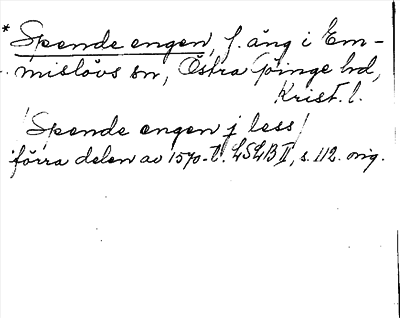 * Spende engen, f. äng i Em-
mislövs sn, Östra Göinge hd,
Krist. l.
/Spende engen j less/
förra delen av 1570-t. LSLB II, s. 112. orig.